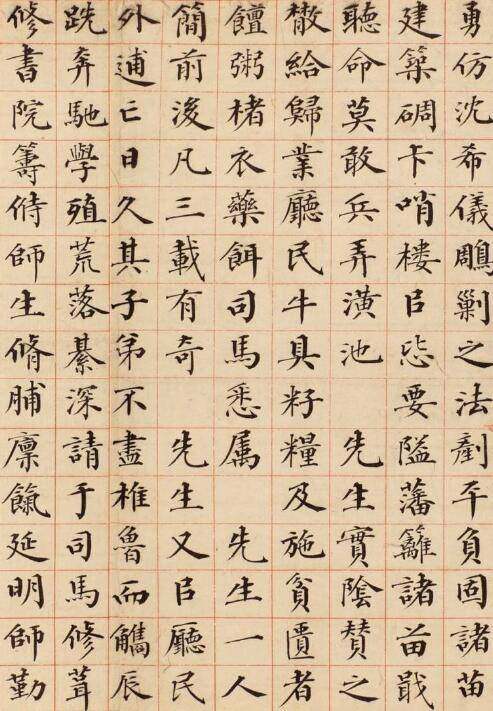 勇仿沈希儀鵰剿之法剷平負固諸苗
建築碉卡哨楼㠯要隘藩籬諸苗戢
聽命莫敢兵弄潢池 先生實陰贊之
散給歸業廳民牛具籽糧及施貧匱者
饘粥楮衣藥餌司馬悉属 先生一人
簡前後凡三載有奇 先生又㠯廳民
外逋亡日久其子弟不盡椎魯而觿辰
跣奔馳學殖荒落綦深請于司馬修葺
修書院籌偫師生脩脯廪餼延明師勤